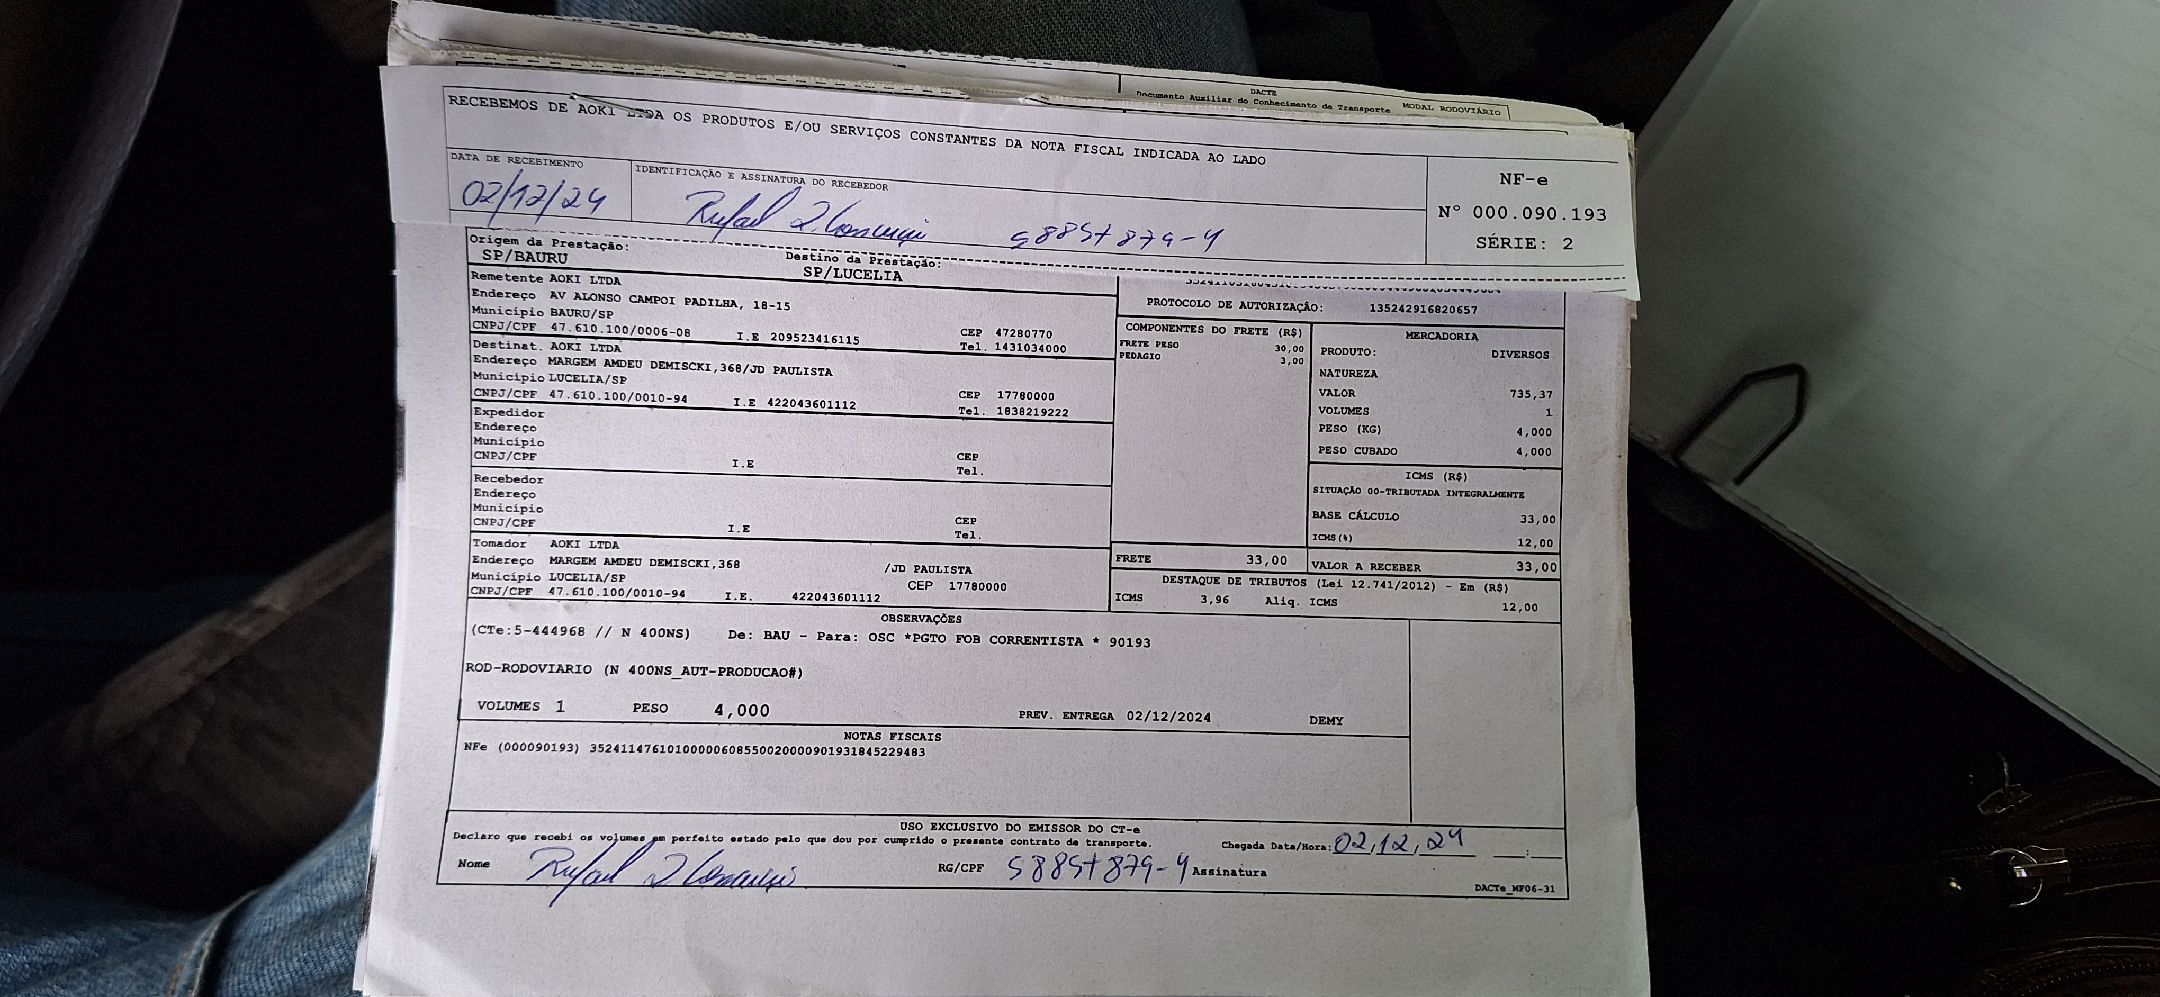 DACTE
Documento Auxiliar do Conhecimento de Transporte MODAL RODOVIÁRIO
RECEBEMOS DE AOKI LTDA OS PRODUTOS E/OU SERVIÇOS CONSTANTES DA NOTA FISCAL INDICADA AO LADO
DATA DE RECEBIMENTO
02/12/24
IDENTIFICAÇÃO E ASSINATURA DO RECEBEDOR
Rafael
NF-e
N° 000.090.193
SÉRIE: 2
Origem da Prestação:
SP/BAURU
Destino da Prestação:
SP/LUCELIA
Remetente AOKI LTDA
Endereço AV ALONSO CAMPOI PADILHA, 18-15
Município BAURU/SP
CNPJ/CPF 47.610.100/0006-08 I.E 209523416115
CEP 47280770
Tel. 1431034000
Destinat. AOKI LTDA
Endereço MARGEM AMDEU DEMISCKI,368/JD PAULISTA
Município LUCELIA/SP
CNPJ/CPF 47.610.100/0010-94 I.E 422043601112
CEP 17780000
Tel. 1838219222
Expedidor
Endereço
Município
CNPJ/CPF I.E
CEP
Tel.
Recebedor
Endereço
Município
CNPJ/CPF I.E
CEP
Tel.
Tomador AOKI LTDA
Endereço MARGEM AMDEU DEMISCKI,368 /JD PAULISTA
Município LUCELIA/SP CEP 17780000
CNPJ/CPF 47.610.100/0010-94 I.E. 422043601112
PROTOCOLO DE AUTORIZAÇÃO: 135242916820657
COMPONENTES DO FRETE (R$)
FRETE PESO 30,00
PEDAGIO 3,00
FRETE 33,00
MERCADORIA
PRODUTO: DIVERSOS
NATUREZA
VALOR 735,37
VOLUMES 1
PESO (KG) 4,000
PESO CUBADO 4,000
ICMS (R$)
SITUAÇÃO 00-TRIBUTADA INTEGRALMENTE
BASE CÁLCULO 33,00
ICMS(%) 12,00
VALOR A RECEBER 33,00
DESTAQUE DE TRIBUTOS (Lei 12.741/2012) - Em (R$)
ICMS 3,96 Aliq. ICMS 12,00
OBSERVAÇÕES
(CTe:5-444968 // N 400NS) De: BAU - Para: OSC *PGTO FOB CORRENTISTA * 90193
ROD-RODOVIARIO (N 400NS_AUT-PRODUCAO#)
VOLUMES 1 PESO 4,000 PREV. ENTREGA 02/12/2024 DEMY
NOTAS FISCAIS
NFe (000090193) 35241147610100000608550020000901931845229483
USO EXCLUSIVO DO EMISSOR DO CT-e
Declaro que recebi os volumes em perfeito estado pelo que dou por cumprido o presente contrato de transporte.
Chegada Data/Hora: 02,12,24
Nome Rafael
RG/CPF
Assinatura
DACTe_MF06-31